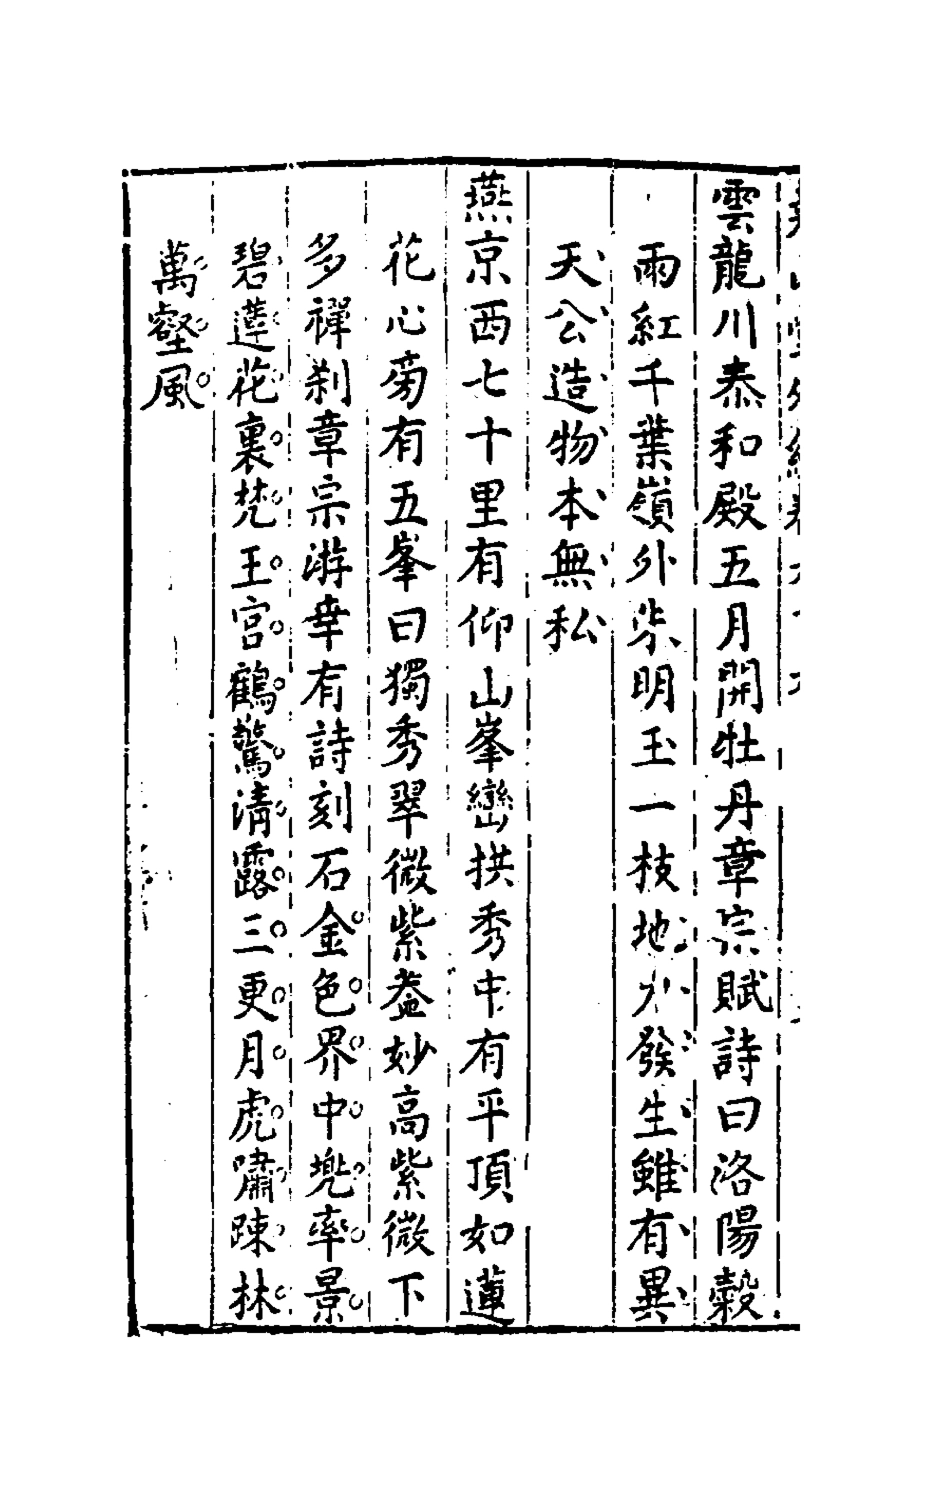 雲龍川泰和殿五月開牡丹章宗賦詩曰洛陽穀
雨紅千葉嶺外朱明玉一枝地力發生雖有異
天公造物本無私
燕京西七十里有仰山峯巒拱秀中有平頂如蓮
花心旁有五峯曰獨秀翠微紫葢妙高紫微下
多禪剎章宗游幸有詩刻石金色界中兠率景
碧蓮花裏梵王宮鶴驚清露三更月虎嘯踈林
萬壑風